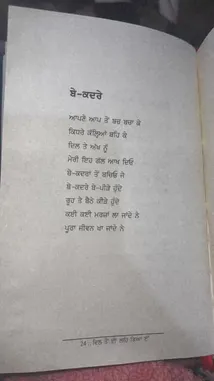 ਬੇ-ਕਦਰੇ
ਆਪਣੇ ਆਪ ਤੋਂ ਬਚ ਬਚਾ ਕੇ
ਕਿਧਰੇ ਕੱਲਿਆਂ ਬਹਿ ਕੇ
ਦਿਲ ਤੇ ਅੱਖ ਨੂੰ
ਮੇਰੀ ਇਹ ਗੱਲ ਆਖ ਦਿਓ
ਬੇ-ਕਦਰਾਂ ਤੋਂ ਬਚਿਓ ਜੇ
ਬੇ-ਕਦਰੇ ਬੇ-ਪੀੜੇ ਹੁੰਦੇ
ਰੂਹ ਤੇ ਬੈਠੇ ਕੀੜੇ ਹੁੰਦੇ
ਕਈ ਕਈ ਮਰਜ਼ਾਂ ਲਾ ਜਾਂਦੇ ਨੇ
ਪੂਰਾ ਜੀਵਨ ਖਾ ਜਾਂਦੇ ਨੇ
ਦਿਲ ਤੋਂ ਦੀ